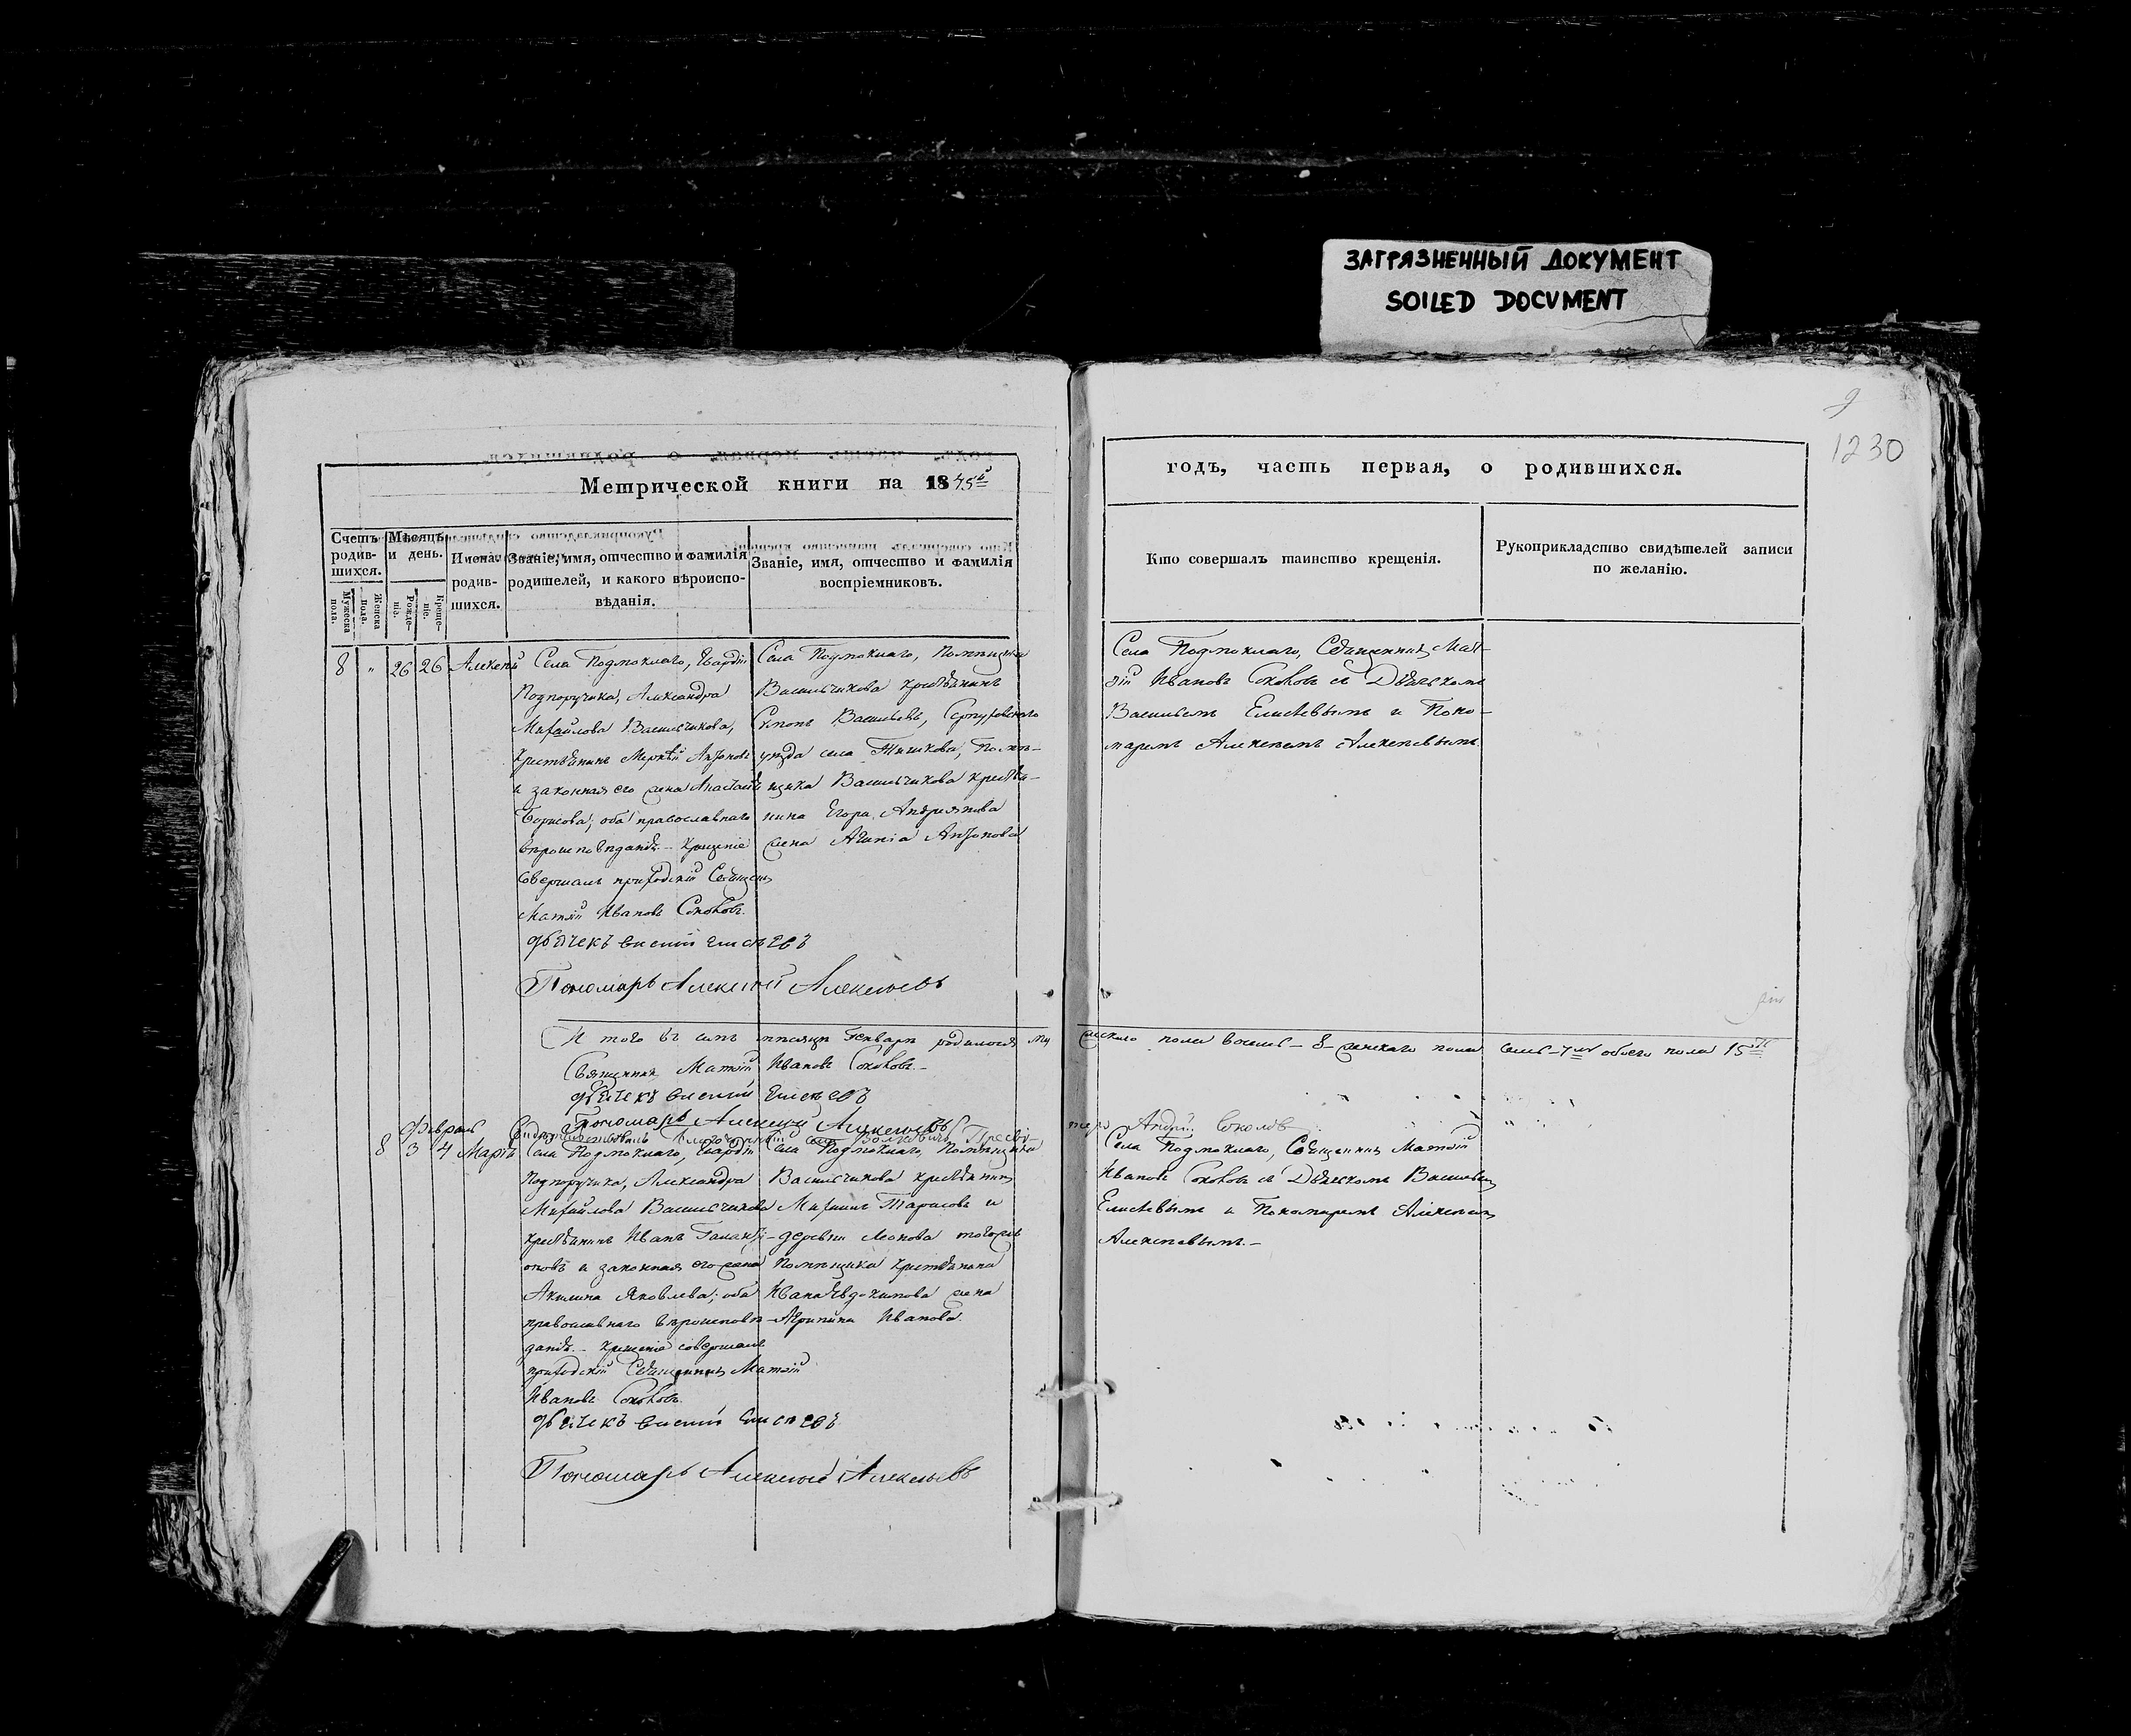 ЗАГРЯЗНЕННЫЙ ДОКУМЕНТ
SOILED DOCUMENT
1230
Метрической книги на 1845й
годъ, часть первая, о родившихся.
Счетъ родив-шихся.
Мужеска пола.
Женска пола.
Мѣсяцъ и день.
Рожде-нія.
Креще-нія.
Имена родив-шихся.
Званіе, имя, отчество и фамилія
родителей, и какого вѣроиспо-
вѣданія.
Званіе, имя, отчество и фамилія
воспріемниковъ.
Кто совершалъ таинство крещенія.
Рукоприкладство свидѣтелей записи
по желанію.
8 " 26 26 Алексѣй
Села Подмоклаго, Гвардіи
Подпоручика, Александра
Михайлова Васильчикова,
крестьянинъ Меркѣй Антоновъ
и законная его жена Анастасія
Борисова; оба православнаго
вѣроисповѣданія. Крещеніе
совершалъ приходскій Священ
Матѳій Ивановъ Соколовъ.
Села Подмоклаго, Помѣщика
Васильчикова крестьянинъ
Васильевъ, Серпуховскаго
уѣзда села Тишкова, Помѣ-
щика Васильчикова крестья-
нина Егора Андреянова
жена Антонова
дьячекъ василій елисѣевъ
Пономарь Алексѣй Алексѣевъ
Села Подмоклаго, Священникъ Мат-
ѳій Ивановъ Соколовъ съ Дьячкомъ
Васильемъ Елисѣевымъ и Поно-
маремъ Алексѣемъ Алексѣевымъ.
Итого въ семъ мѣсяцѣ Генварѣ родилося мужескаго пола восемь - 8 - женскаго пола семь - 7 обоего пола 15
Священникъ Матѳій Ивановъ Соколовъ.
дьячекъ василій Елисѣевъ
Пономарь Алексѣй Алексѣевъ
Андрей Соколовъ
Февраль
8 3 4 Марѳа
Села Подмоклаго, Гвардіи
Подпоручика, Александра
Михайлова Васильчикова
крестьянинъ Иванъ
оновъ и законная его жена
Акилина Яковлева; оба
православнаго вѣроисповѣ-
данія. Крещеніе совершалъ
приходскій Священникъ Матѳій
Ивановъ Соколовъ.
Села Подмоклаго, Помѣщика
Васильчикова крестьянинъ
Тарасовъ и
деревни Леонова тогожъ
Помѣщика крестьянина
Ивана Евдокимова жена
Агрипина Иванова.
дьячекъ василій Елисѣевъ
Пономарь Алексѣй Алексѣевъ
Села Подмоклаго, Священникъ Матѳій
Ивановъ Соколовъ съ Дьячкомъ Васильемъ
Елисѣевымъ и Пономаремъ Алексѣемъ
Алексѣевымъ.